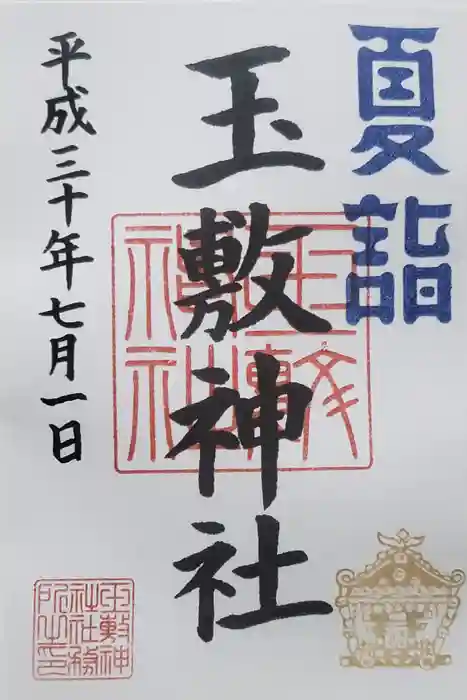 夏詣
玉敷神社
平成三十年七月一日
玉敷神社
玉敷神
社社務
所之印